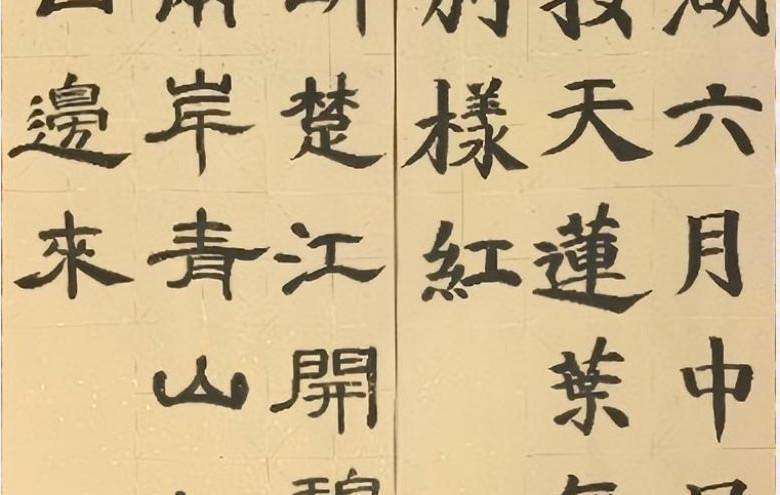 湖六月中
接天蓮葉無
別樣紅
斷楚江開碧
兩岸青山
日邊來